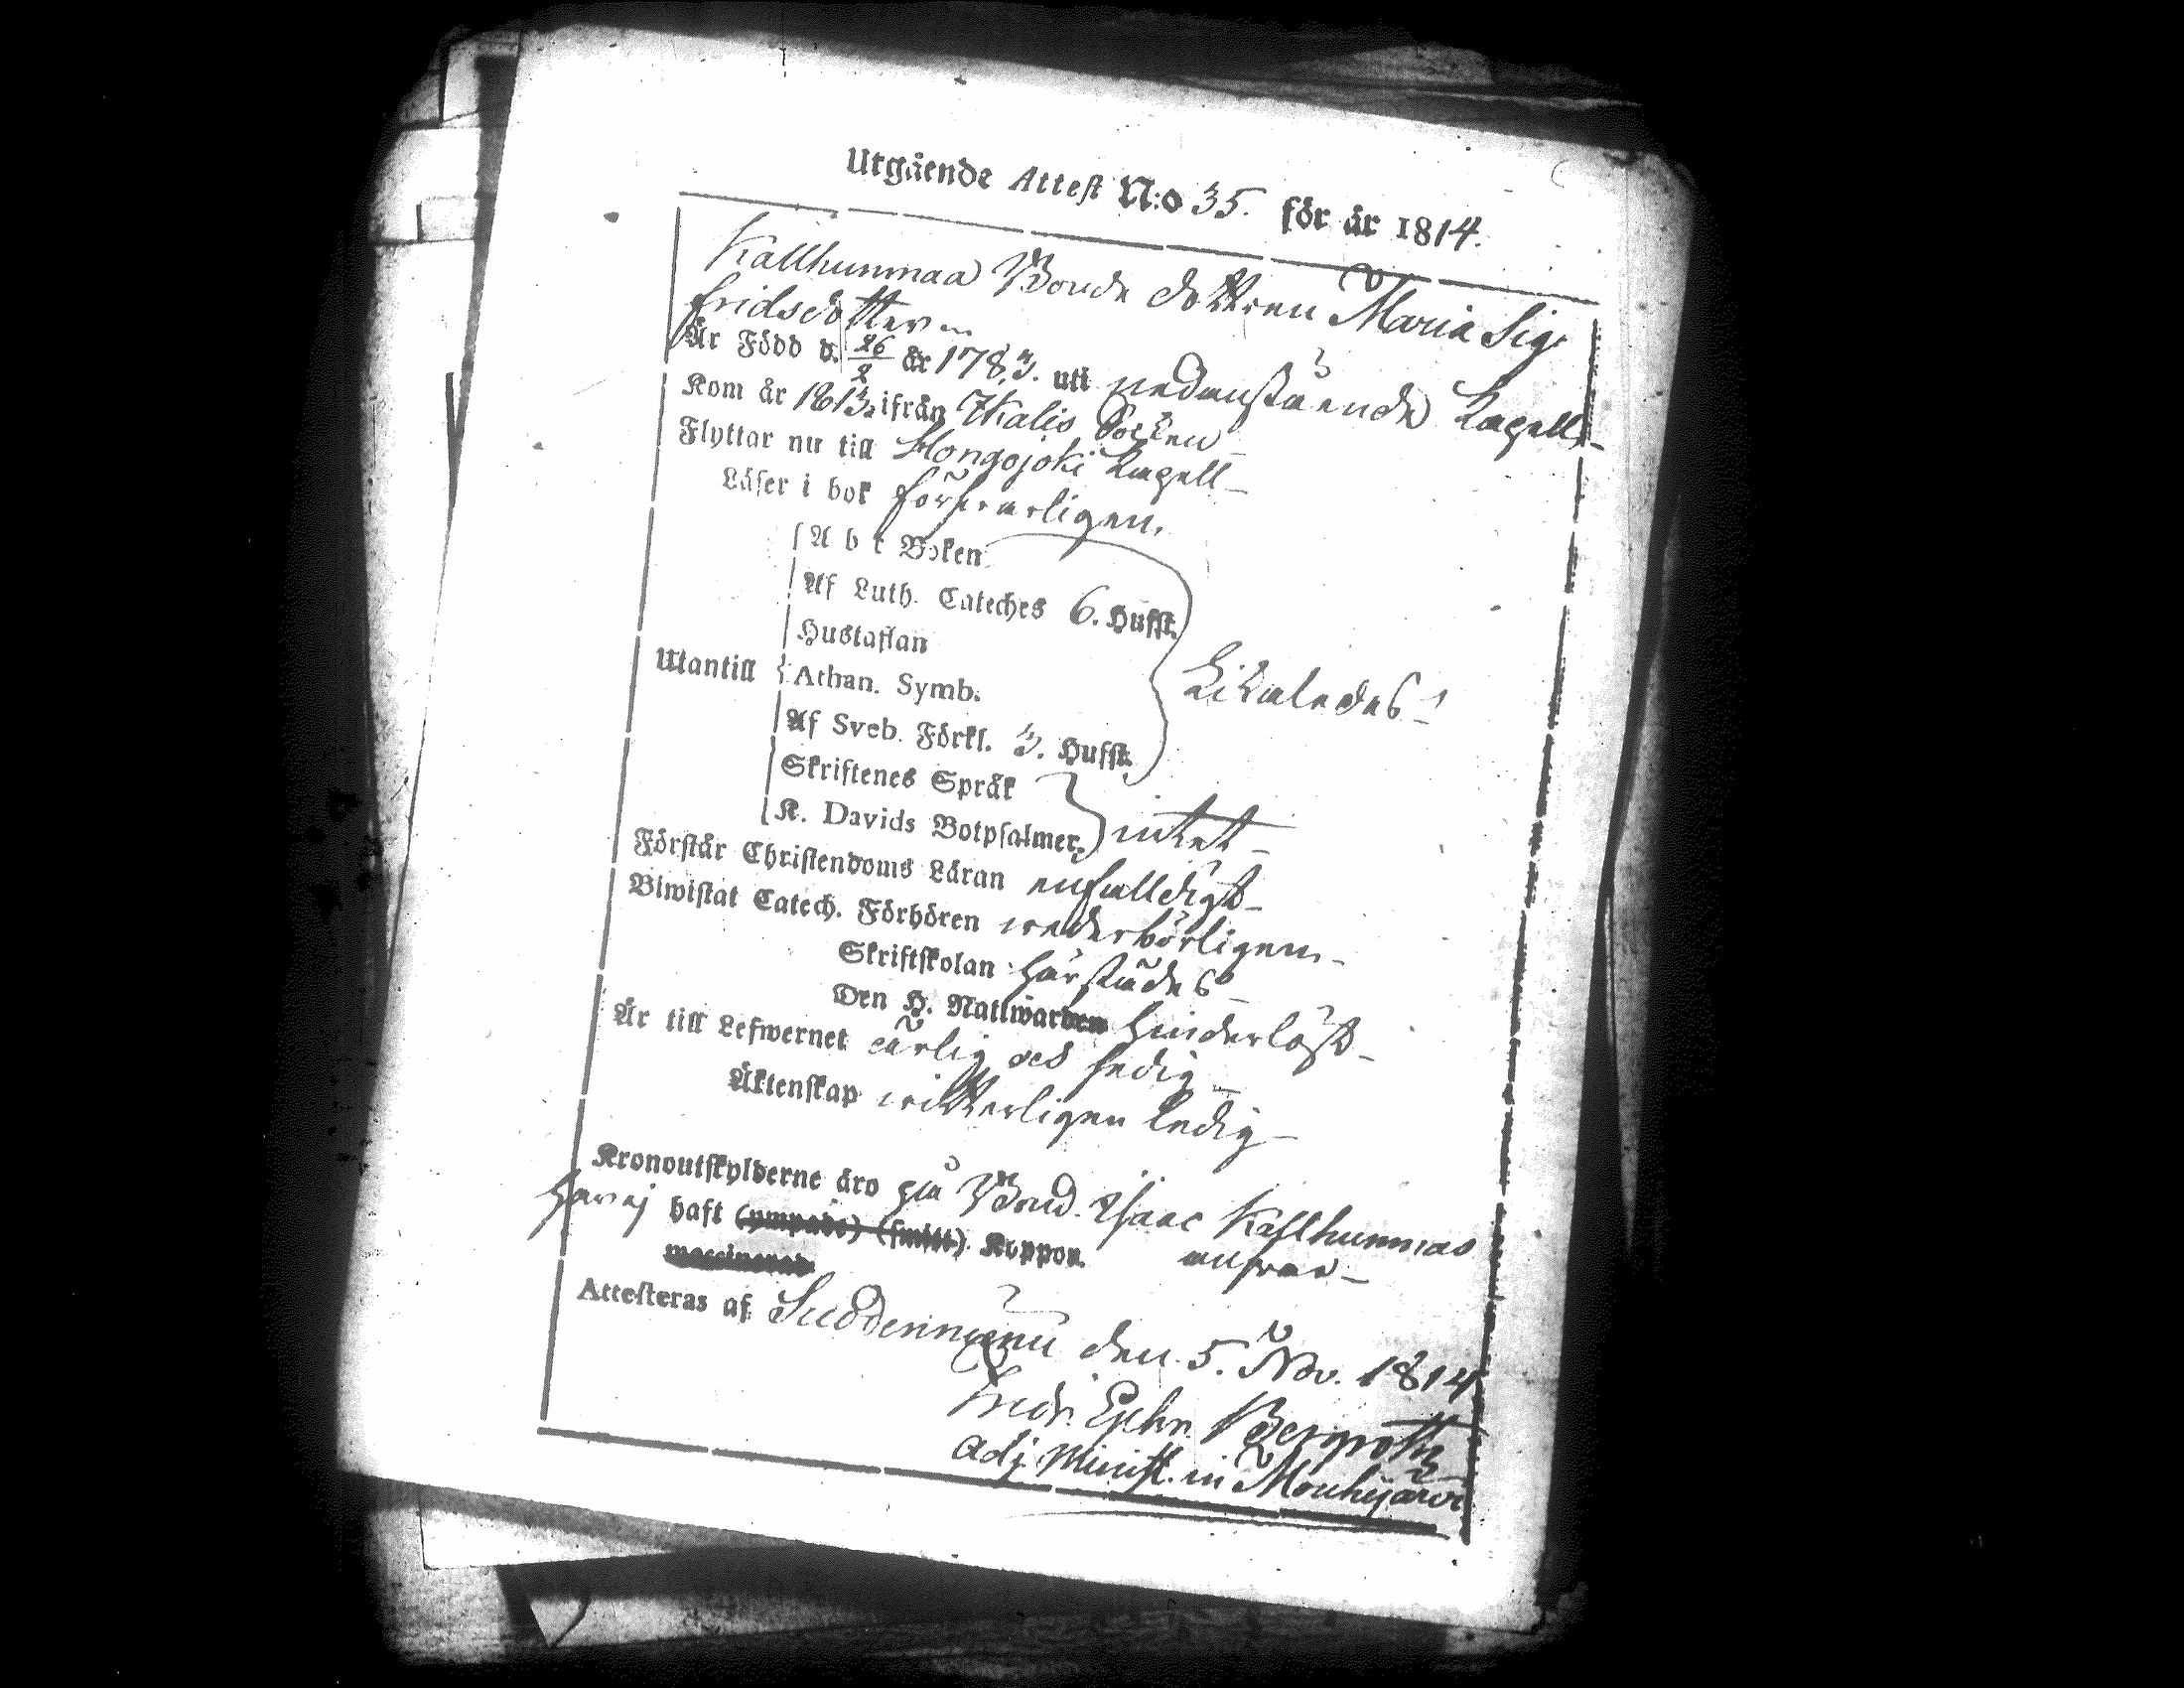 Utgående Attest N:o 35. för år 1814.
Kallhunmaa Bonde dottren Maria Sig-
fridsdotter
Är Född d. 26/2 år 1783. uti nedanstående Capell
Kom år 1813 ifrån Ikalis Socken
Flyttar nu till Hongojoki Capell
Läser i bok försvarligen.
A b c Boken
Af Luth. Cateches 6. Hufst.
Hustaflan
Utantill Athan. Symb. Likaledes
Af Sveb. Förkl. 3. Hufst.
Skriftenes Språk
K. Davids Botpsalmer. intet
Förstår Christendoms Läran enfalldigt
Biwistat Catech. Förhören wederbörligen
Skriftskolan härstädes
Den H. Nattwarden hinderlöst
Är till Lefwernet ärlig och sedig
Äktenskap witterligen ledig
Kronoutskylderne äro på Bond. Isaac Kallhunmas
ansvar
Har ej haft (ympade) (smitt) Koppor.
vaccinerad
Attesteras af Suodenniemi den 5. Nov. 1814
Fredr. Ephr. Bergroth
Adj. Minist. in Mouhijärvi